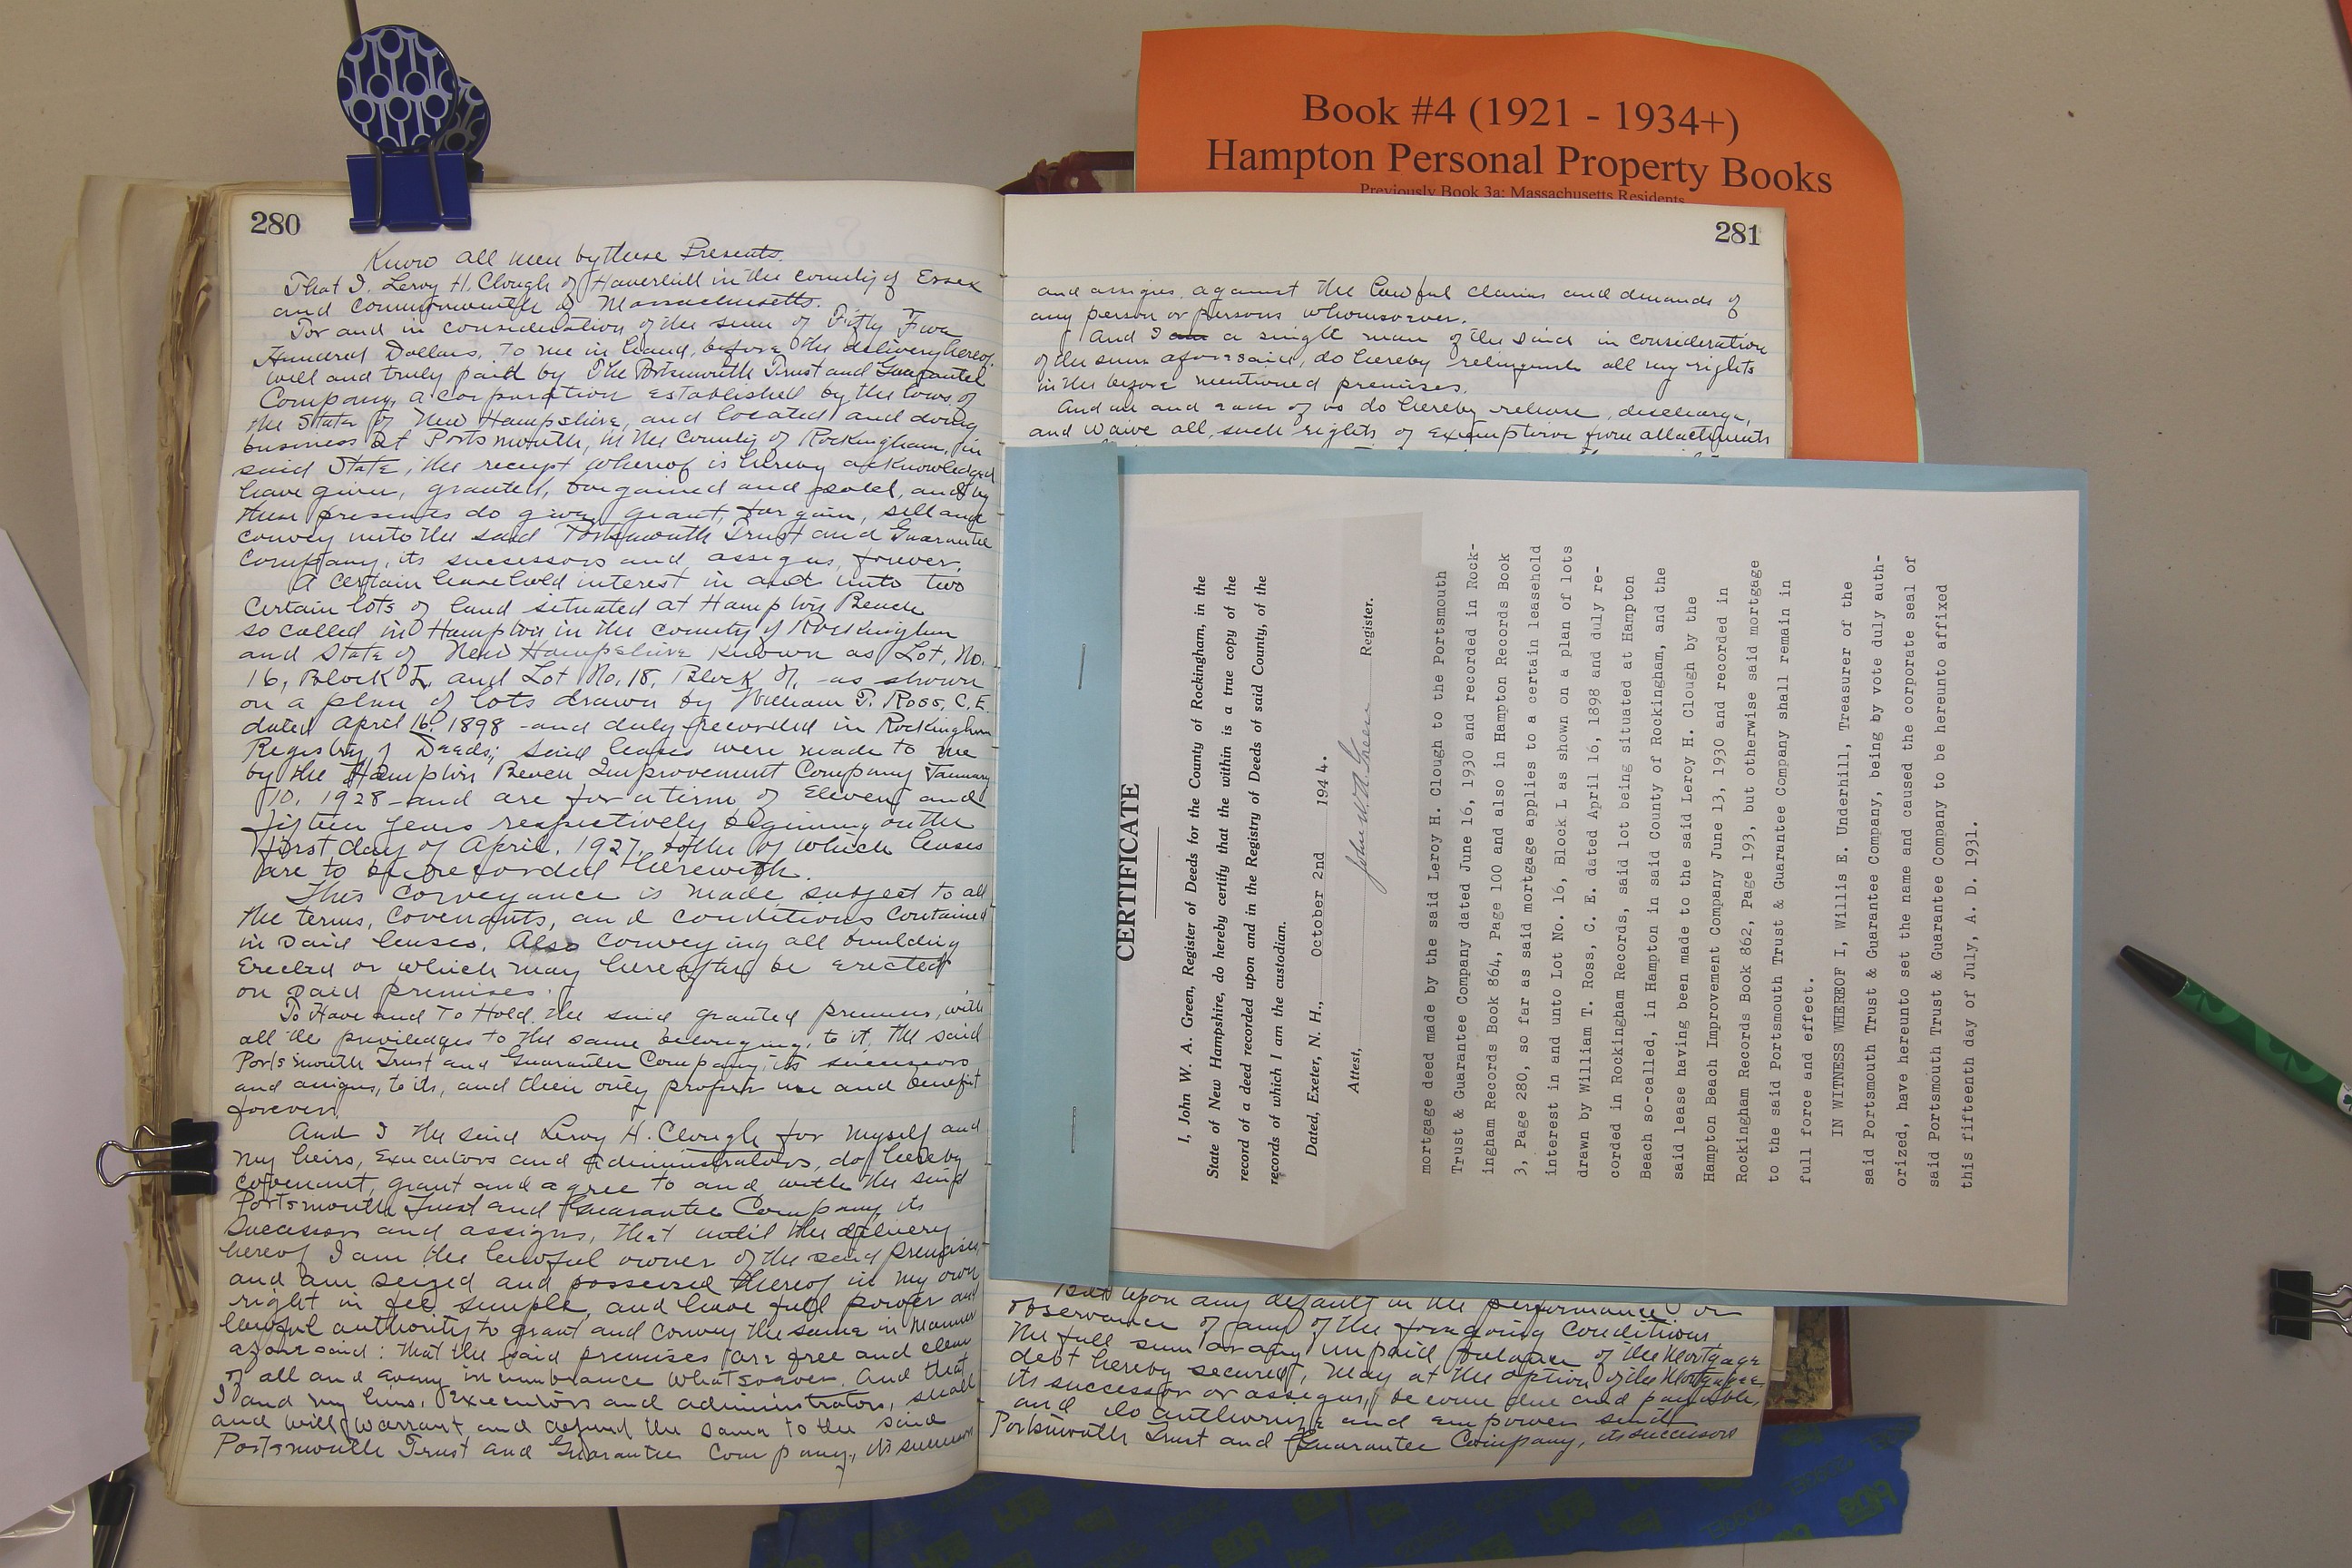 Book #4 (1921 - 1934+)
Hampton Personal Property Books
Previously Book 3a: Massachusetts Residents
280
Know all men by these Presents.
That I, Leroy H. Clough of Haverhill in the county of Essex
and commonwealth of Massachusetts.
For and in consideration of the sum of Fifty Five
Hundred Dollars, To me in hand, before the delivery hereof,
well and truly paid by The Portsmouth Trust and Guarantee
Company, a corporation established by the laws of
the State of New Hampshire, and located and doing
business at Portsmouth, in the County of Rockingham, in
said State, the receipt whereof is hereby acknowledged
have given, granted, bargained and sold, and by
these presents do give, grant, bargain, sell and
convey unto the said Portsmouth Trust and Guarantee
Company, its successors and assigns, forever.
A certain leasehold interest in and unto two
certain lots of land situated at Hampton Beach
so called in Hampton in the county of Rockingham
and State of New Hampshire known as Lot, No.
16, Block L, and Lot No. 18, Block - as shown
on a plan of lots drawn by William T. Ross, C.E.
dated April 16, 1898 - and duly recorded in Rockingham
Registry of Deeds; said leases were made to me
by the Hampton Beach Improvement Company January
10, 1928 - and are for a term of Eleven and
fifteen years respectively beginning on the
first day of April, 1927, both of which leases
are to be recorded herewith.
This conveyance is made subject to all
the terms, covenants, and conditions contained
in said leases. Also conveying all building
erected or which may hereafter be erected
on said premises.
To Have and To Hold the said granted premises, with
all the priviledges to the same belonging, to it, the said
Portsmouth Trust and Guarantee Company, its successors
and assigns, to its, and their only proper use and benefit
forever.
And I the said Leroy H. Clough for myself and
my heirs, Executors and administrators, do hereby
covenant, grant and agree to and with the said
Portsmouth Trust and Guarantee Company, its
successors and assigns, that until the delivery
hereof I am the lawful owner of the said premises,
and am seized and possessed thereof in my own
right in fee simple, and have full power and
lawful authority to grant and convey the same in manner
aforesaid: that the said premises are free and clear
of all and every incumbrance whatsoever. And that
I and my heirs, Executors and administrators, shall
and will warrant and defend the same to the said
Portsmouth Trust and Guarantee Company, its successors
281
and assigns, against the lawful claims and demands of
any person or persons whomsoever.
And I am a single man of the said in consideration
of the sum aforesaid, do hereby relinquish all my rights
in the before mentioned premises.
And we and each of us do hereby release, discharge,
and waive all, such rights of exemption from attachments
CERTIFICATE
I, John W. A. Green, Register of Deeds for the County of Rockingham, in the
State of New Hampshire, do hereby certify that the within is a true copy of the
record of a deed recorded upon and in the Registry of Deeds of said County, of the
records of which I am the custodian.
Dated, Exeter, N. H., October 2nd 1944.
John W. A. Green
Attest, Register.
mortgage deed made by the said Leroy H. Clough to the Portsmouth
Trust & Guarantee Company dated June 16, 1930 and recorded in Rock-
ingham Records Book 864, Page 100 and also in Hampton Records Book
3, Page 280, so far as said mortgage applies to a certain leasehold
interest in and unto Lot No. 16, Block L as shown on a plan of lots
drawn by William T. Ross, C. E. dated April 16, 1898 and duly re-
corded in Rockingham Records, said lot being situated at Hampton
Beach so-called, in Hampton in said County of Rockingham, and the
said lease having been made to the said Leroy H. Clough by the
Hampton Beach Improvement Company June 13, 1930 and recorded in
Rockingham Records Book 862, Page 193, but otherwise said mortgage
to the said Portsmouth Trust & Guarantee Company shall remain in
full force and effect.
IN WITNESS WHEREOF I, Willis E. Underhill, Treasurer of the
said Portsmouth Trust & Guarantee Company, being by vote duly auth-
orized, have hereunto set the name and caused the corporate seal of
said Portsmouth Trust & Guarantee Company to be hereunto affixed
this fifteenth day of July, A. D. 1931.
But upon any default in the performance or
observance of any of the foregoing conditions
the full sum or any unpaid balance of the Mortgage
debt hereby secured, may at the option of the Mortgagee,
its successor or assigns, become due and payable,
and do authorize and empower said
Portsmouth Trust and Guarantee Company, its successors